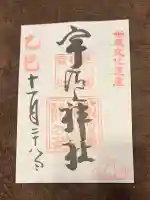 世界文化遺産
宇治上神社
乙巳 十一月二十八日